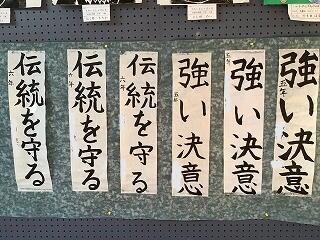 強い決意
五年
強い決意
五年
強い決意
五年
伝統を守る
六年
伝統を守る
六年
伝統を守る
六年